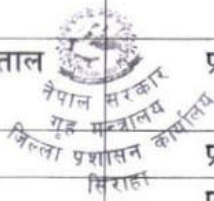 ताल
नेपाल सरकार
गृह मन्त्रालय
जिल्ला प्रशासन कार्यालय
सिराहा